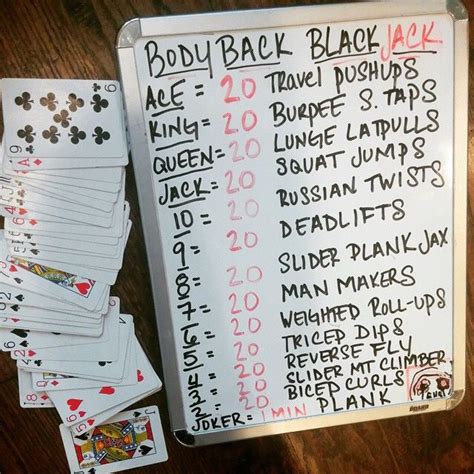 BODY BACK BLACKJACK
ACE = 20 TRAVEL PUSHUPS
KING = 20 BURPEE S. TAPS
QUEEN = 20 LUNGE LATPULLS
JACK = 20 SQUAT JUMPS
10 = 20 RUSSIAN TWISTS
9 = 20 DEADLIFTS
8 = 20 SLIDER PLANK JAX
7 = 20 MAN MAKERS
6 = 20 WEIGHTED ROLL-UPS
5 = 20 TRICEP DIPS
4 = 20 REVERSE FLY
3 = 20 SLIDER MT CLIMBER
2 = 20 BICEP CURLS
JOKER = 1 MIN PLANK
9